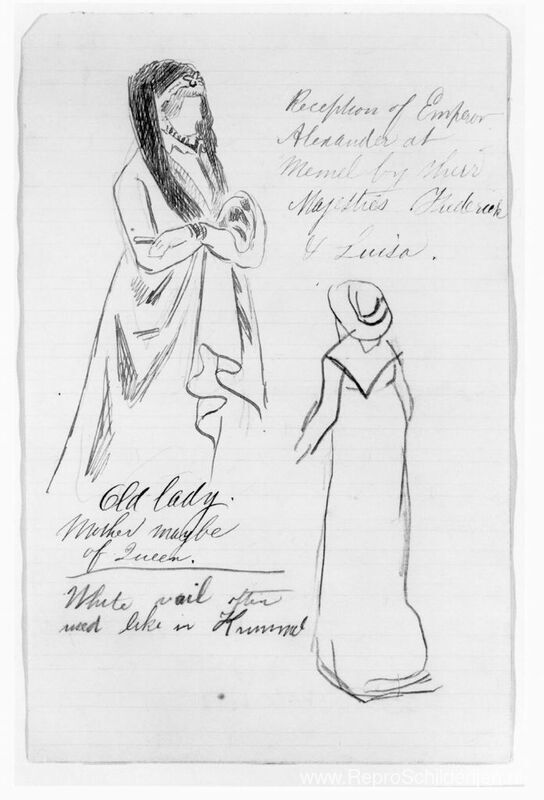 Reception of Emperor
Alexander at
Memel by their
Majesties Frederick
& Luisa.
Old lady.
Mother maybe
of Queen.
White vail often
used like in
www.ReproSchilderijen.nl